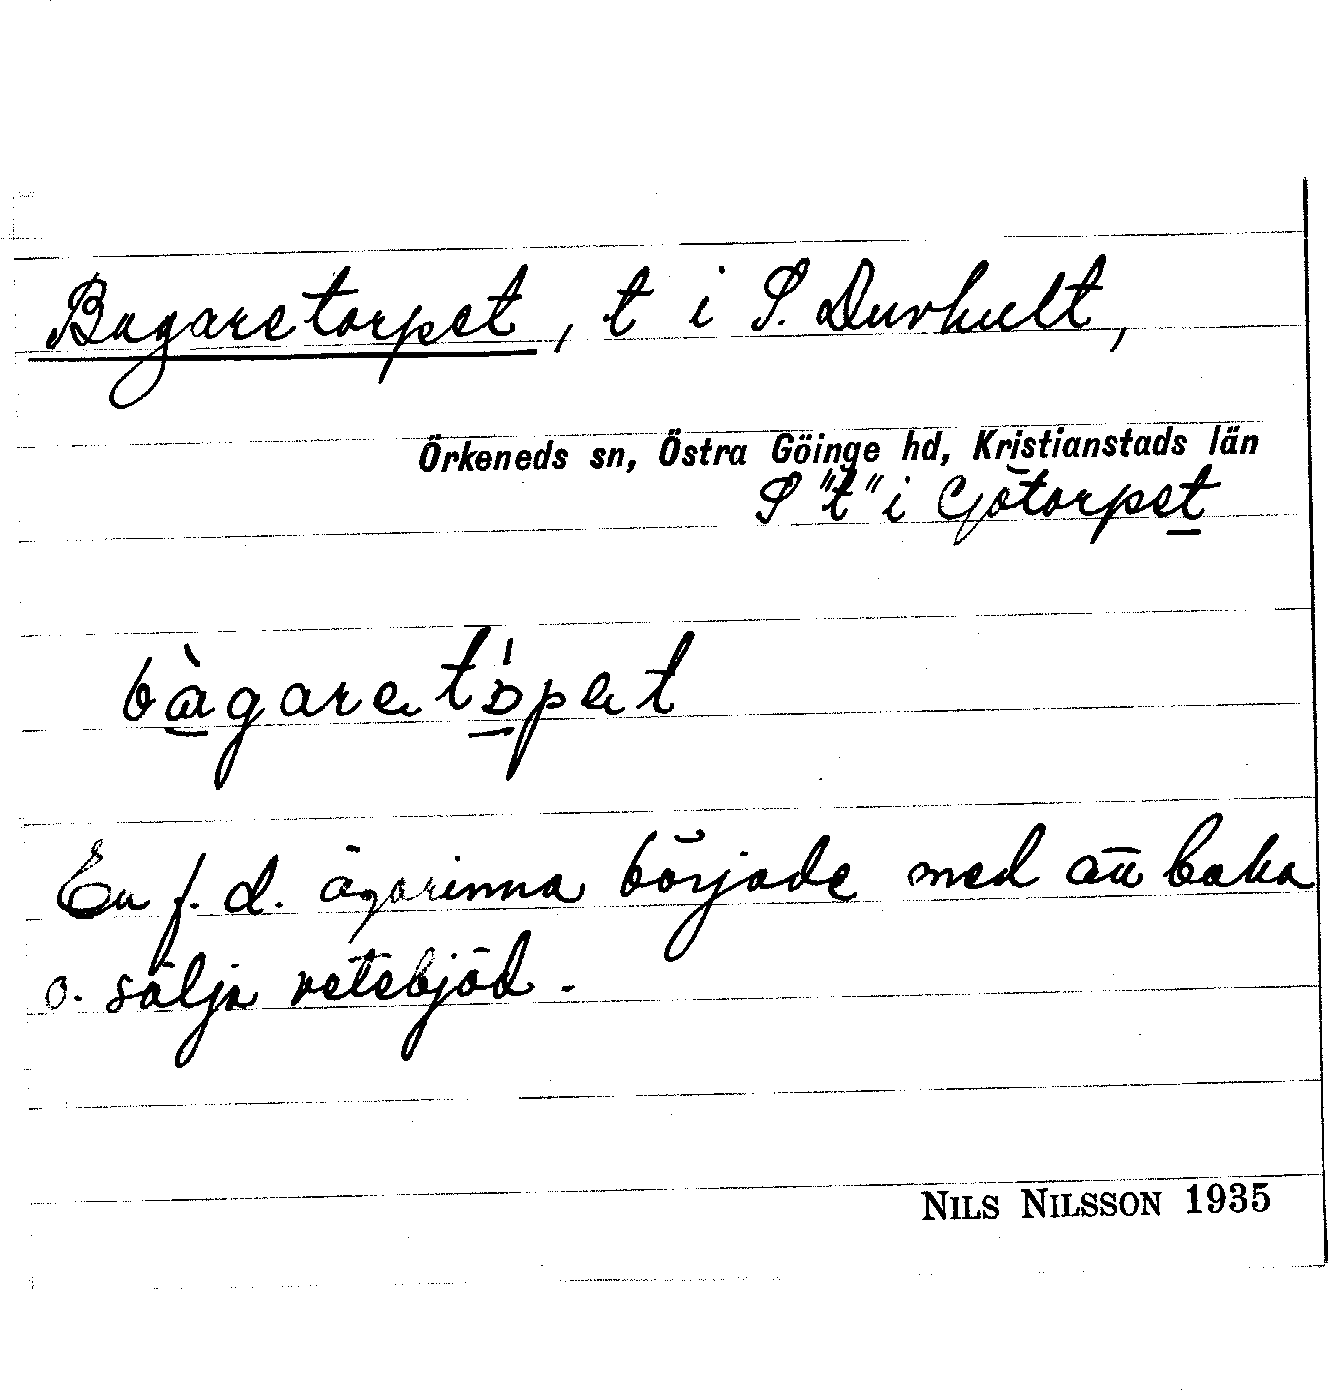 Bagaretorpet, t i S. Duvhult,
Örkeneds sn, Östra Göinge hd, Kristianstads län
S "t" i Götorpet
bàgaretɔ́pet
En f. d. ägarinna började med att baka
o. sälja vetebjöd.
NILS NILSSON 1935